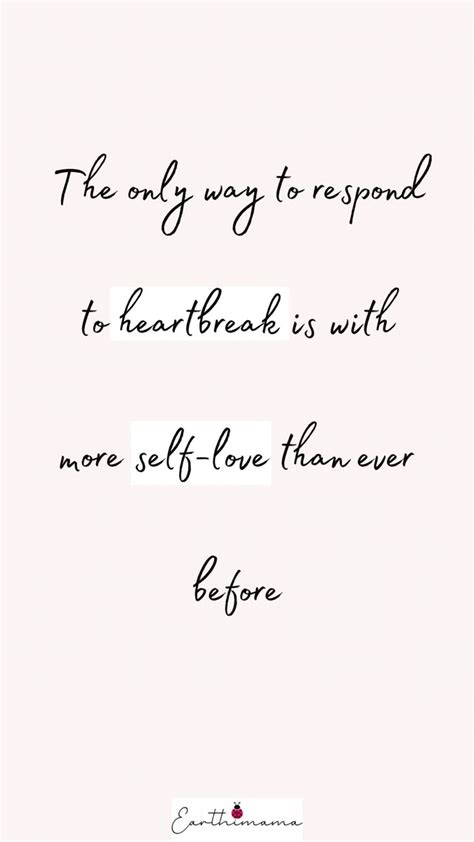 The only way to respond
to heartbreak is with
more self-love than ever
before
Earthimama